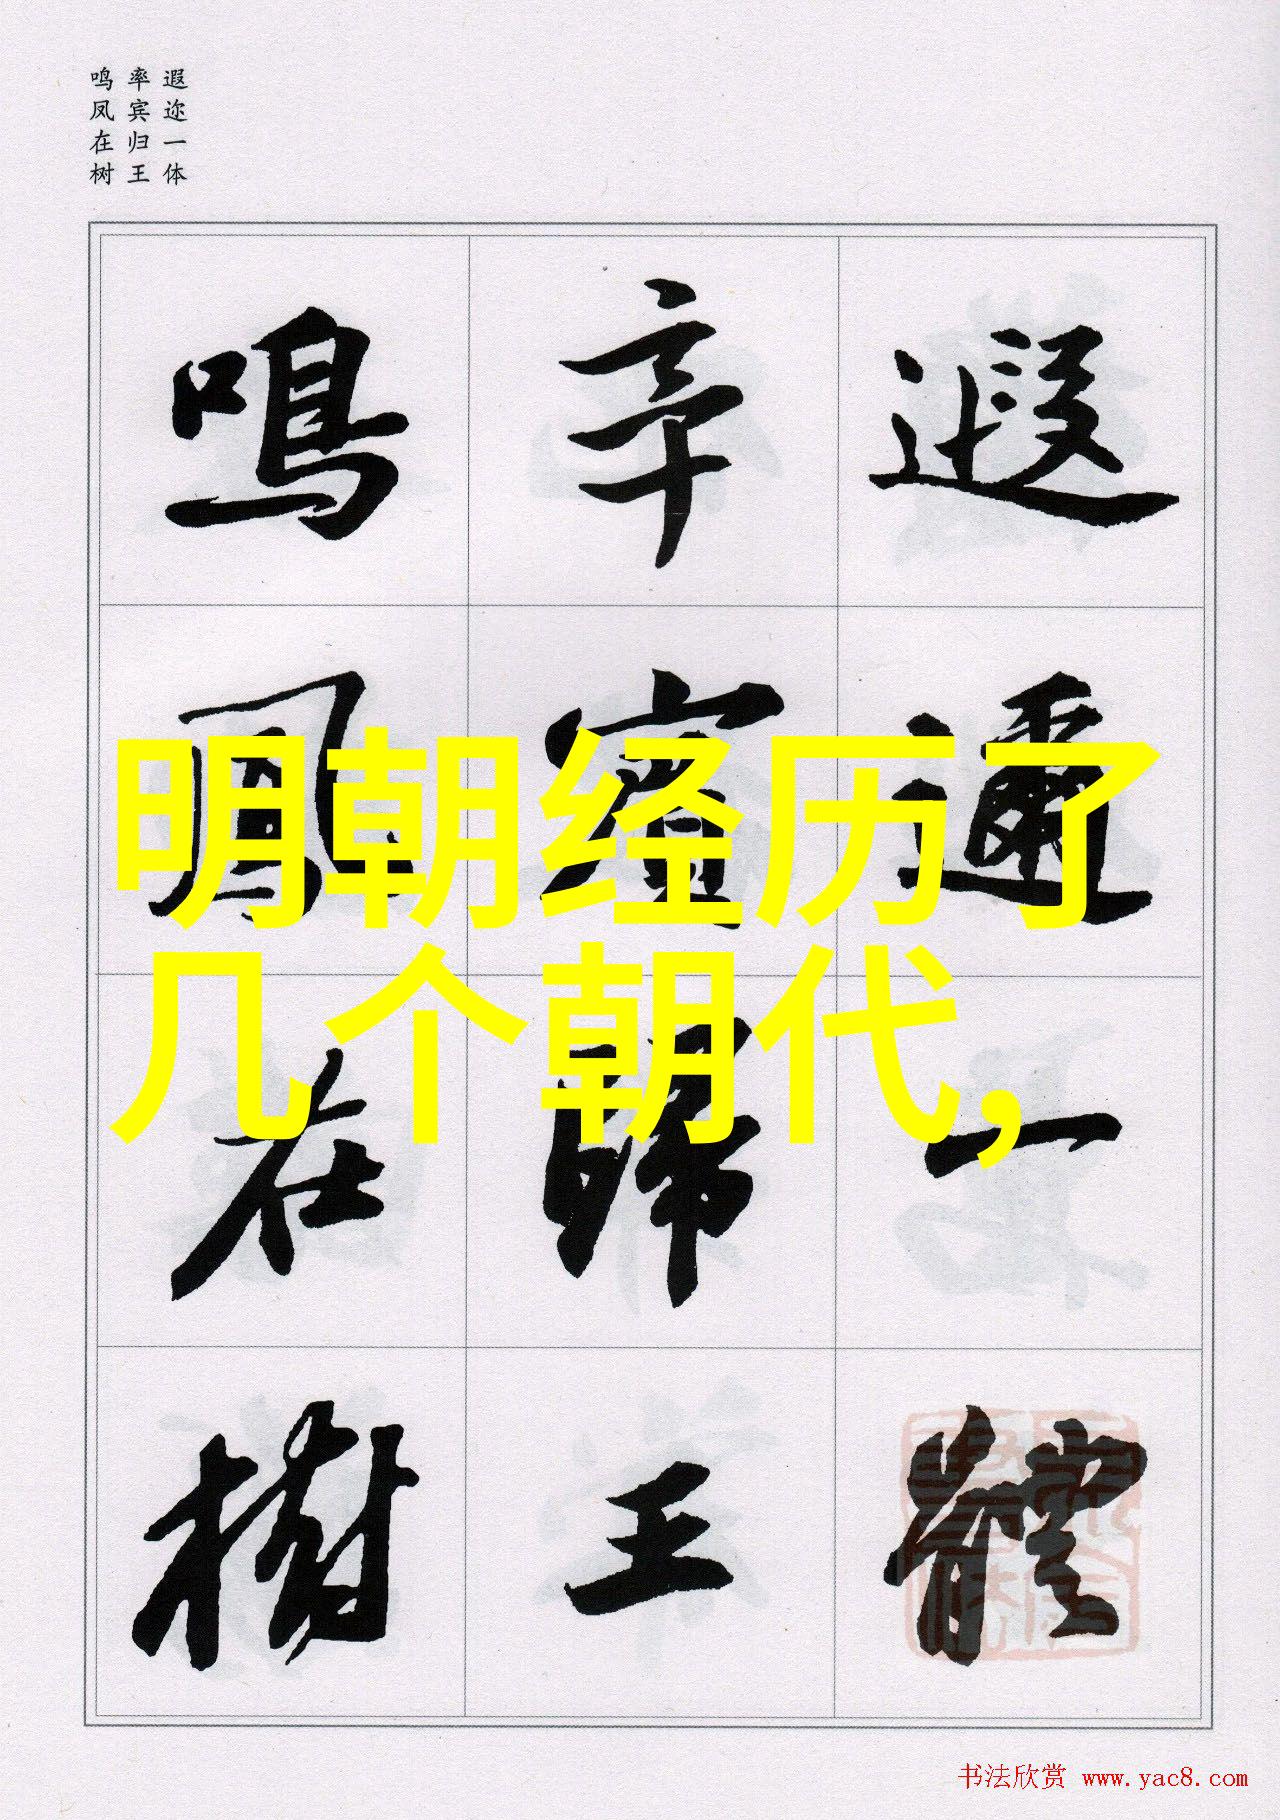 遐迩一体
率宾归王
鸣凤在树
遐邇一體
率賓歸王
鳴鳳在樹
明朝经历了
几个朝代,
书法欣赏 www.yac8.com